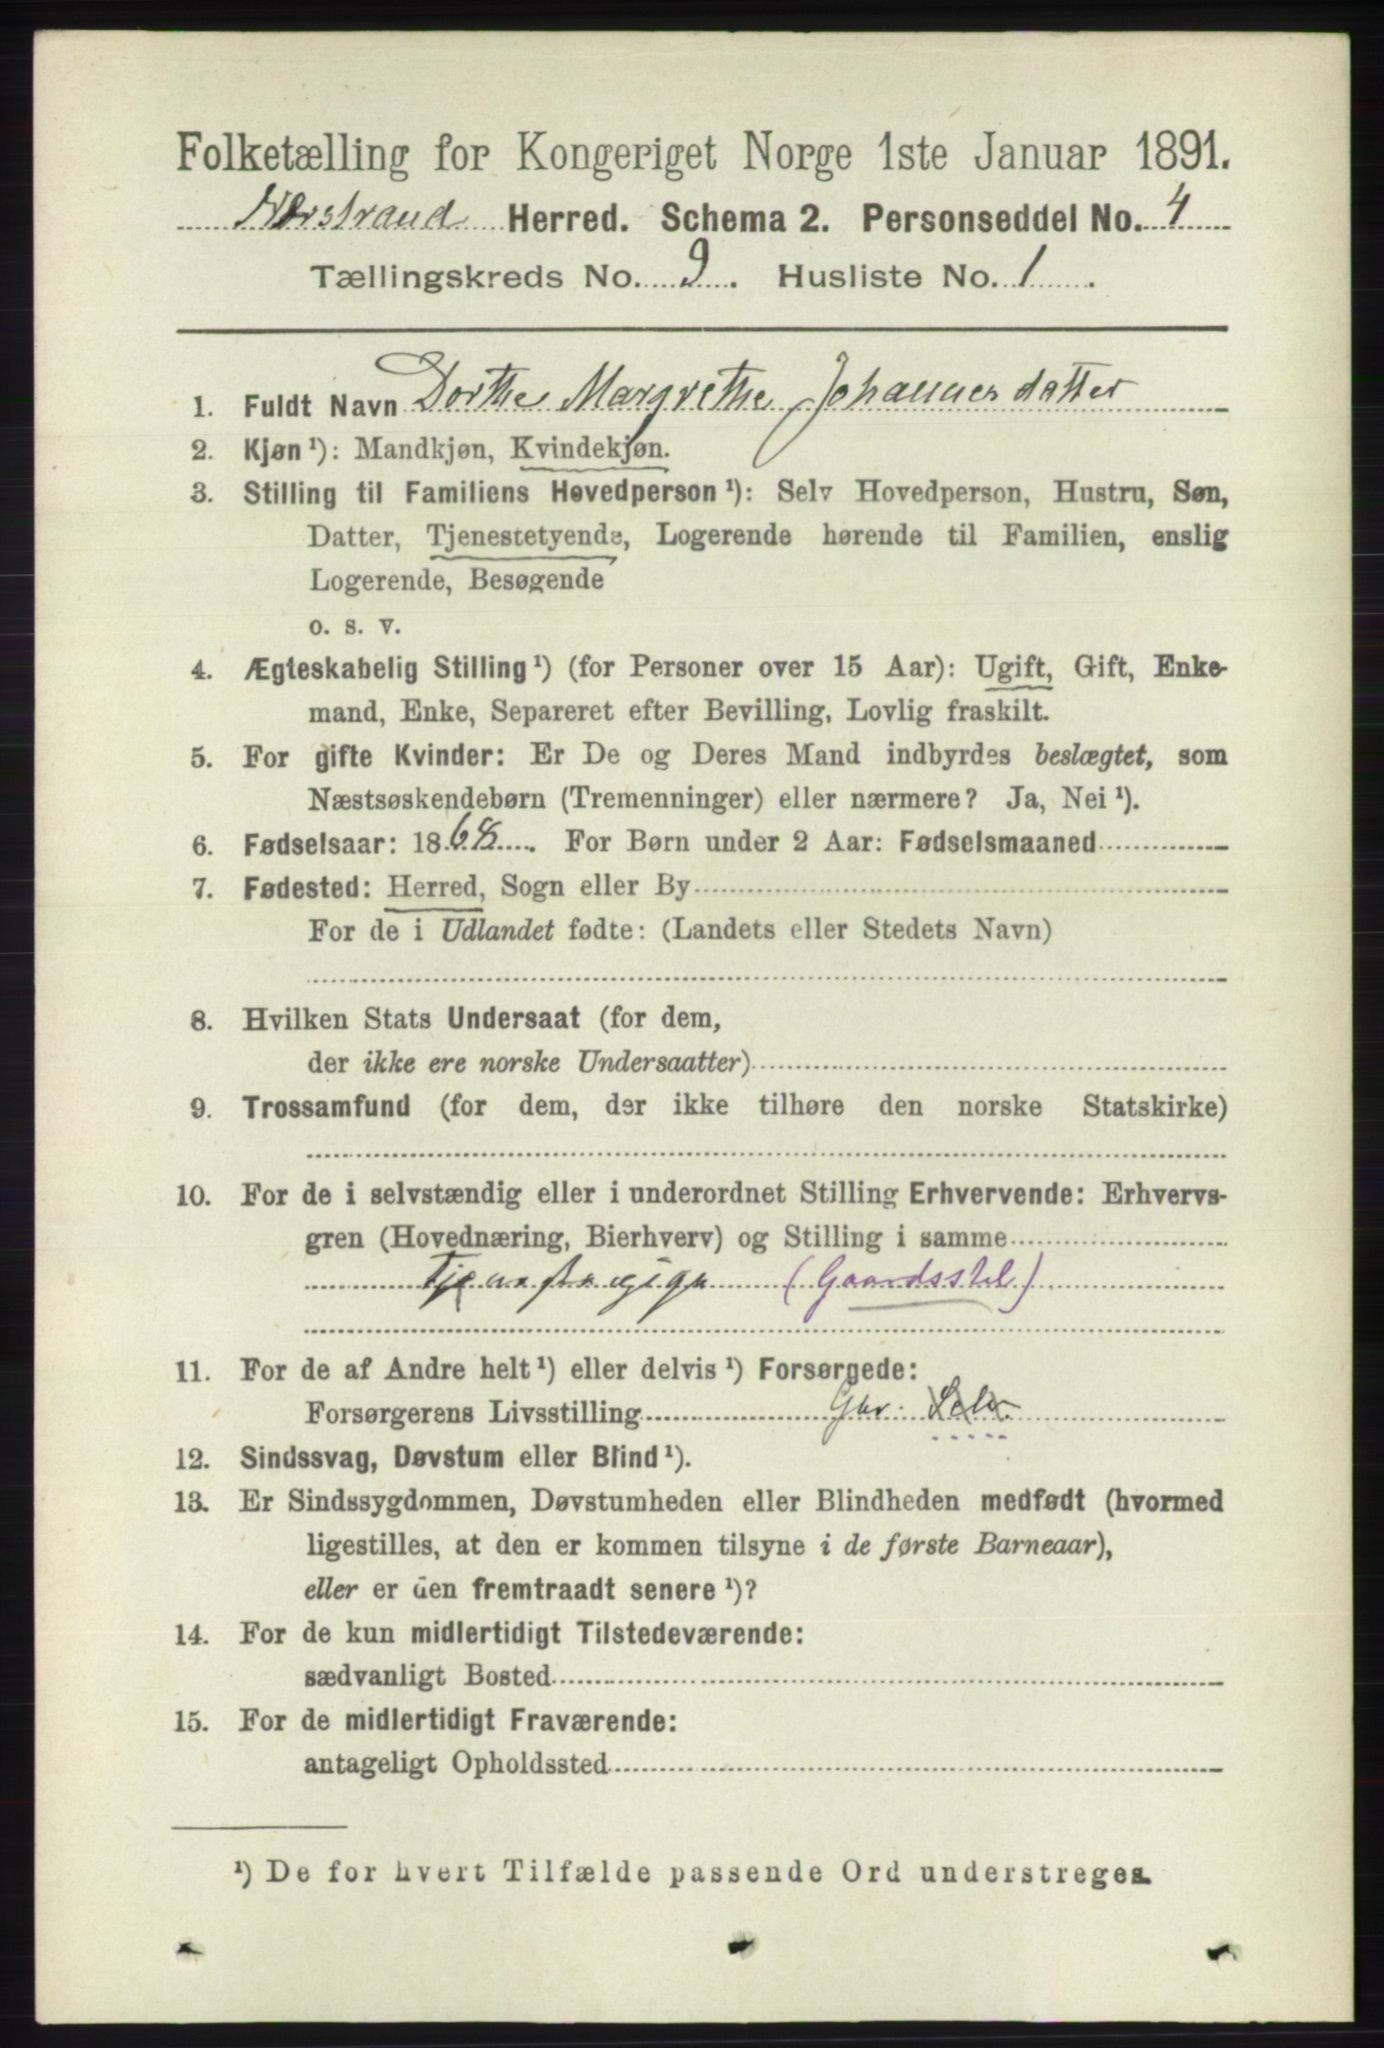 Folketælling for Kongeriget Norge 1ste Januar 1891.
Nerstrand Herred. Schema 2. Personseddel No. 4
Tællingskreds No. 9. Husliste No. 1.
1. Fuldt Navn Dorthe Margrethe Johannesdatter
2. Kjøn ¹): Mandkjøn, Kvindekjøn.
3. Stilling til Familiens Hovedperson ¹): Selv Hovedperson, Hustru, Søn,
Datter, Tjenestetyende, Logerende hørende til Familien, enslig
Logerende, Besøgende
o. s. v.
4. Ægteskabelig Stilling ¹) (for Personer over 15 Aar): Ugift, Gift, Enke-
mand, Enke, Separeret efter Bevilling, Lovlig fraskilt.
5. For gifte Kvinder: Er De og Deres Mand indbyrdes beslægtet, som
Næstsøskendebørn (Tremenninger) eller nærmere? Ja, Nei ¹).
6. Fødselsaar: 1868. For Børn under 2 Aar: Fødselsmaaned
7. Fødested: Herred, Sogn eller By
For de i Udlandet fødte: (Landets eller Stedets Navn)
8. Hvilken Stats Undersaat (for dem,
der ikke ere norske Undersaatter)
9. Trossamfund (for dem, der ikke tilhøre den norske Statskirke)
10. For de i selvstændig eller i underordnet Stilling Erhvervende: Erhvervs-
gren (Hovednæring, Bierhverv) og Stilling i samme
Tjenestepige (Gaardsstel)
11. For de af Andre helt ¹) eller delvis ¹) Forsørgede:
Forsørgerens Livsstilling Gbr.
12. Sindssvag, Døvstum eller Blind ¹).
13. Er Sindssygdommen, Døvstumheden eller Blindheden medfødt (hvormed
ligestilles, at den er kommen tilsyne i de første Barneaar),
eller er den fremtraadt senere ¹)?
14. For de kun midlertidigt Tilstedeværende:
sædvanligt Bosted
15. For de midlertidigt Fraværende:
antageligt Opholdssted
¹) De for hvert Tilfælde passende Ord understreges.